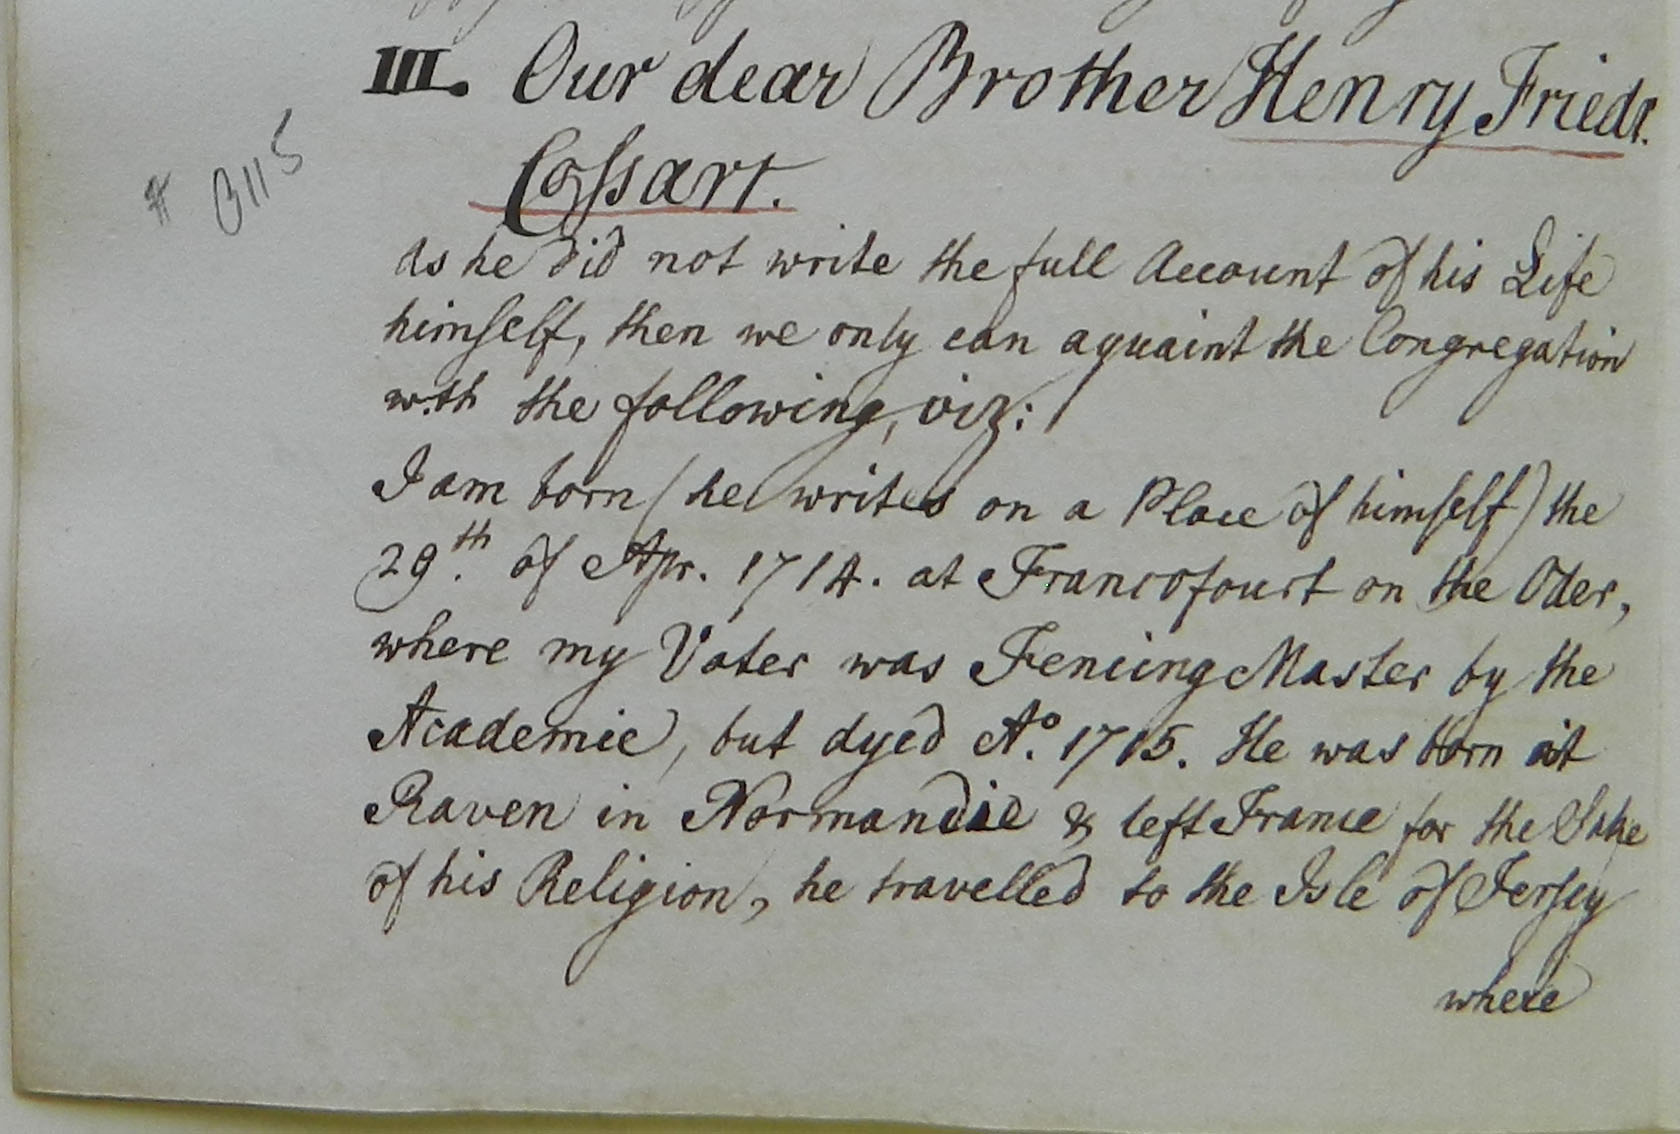 III. Our dear Brother Henry Friedr.
Cossart.
# B115
As he did not write the full Account of his Life
himself, then we only can aquaint the Congregation
with the following, viz:
I am born (he writes on a Place of himself) the
29th. of Apr. 1714. at Francofourt on the Oder,
where my Vater was Fencing Master by the
Academie, but dyed Ao. 1715. He was born at
Raven in Normandie & left France for the Sake
of his Religion, he travelled to the Isle of Jersey
where